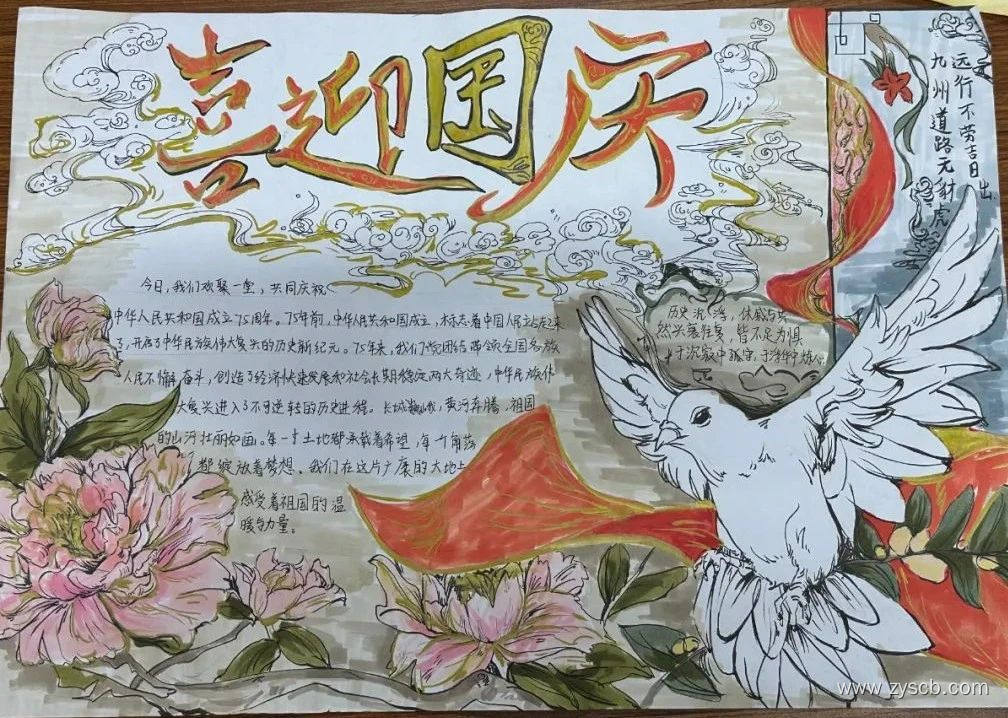 喜迎国庆
今日，我们欢聚一堂，共同庆祝
中华人民共和国成立75周年。75年前，中华人民共和国成立，标志着中国人民站起来
了，开启了中华民族伟大复兴的历史新纪元。75年来，我们党团结带领全国各族
人民不懈奋斗，创造了经济快速发展和社会长期稳定两大奇迹，中华民族伟
大复兴进入了不可逆转的历史进程。长城巍峨，黄河奔腾，祖国
的山河壮丽如画。每一寸土地都承载着希望，每个角落
都绽放着梦想。我们在这片广袤的大地上
感受着祖国的温
暖与力量。
历史沉浮，休戚与共
然兴衰往复，皆不足为惧
于沉寂中 于淬炼
九州道路无豺虎
远行不劳吉日出
www.zyscb.com